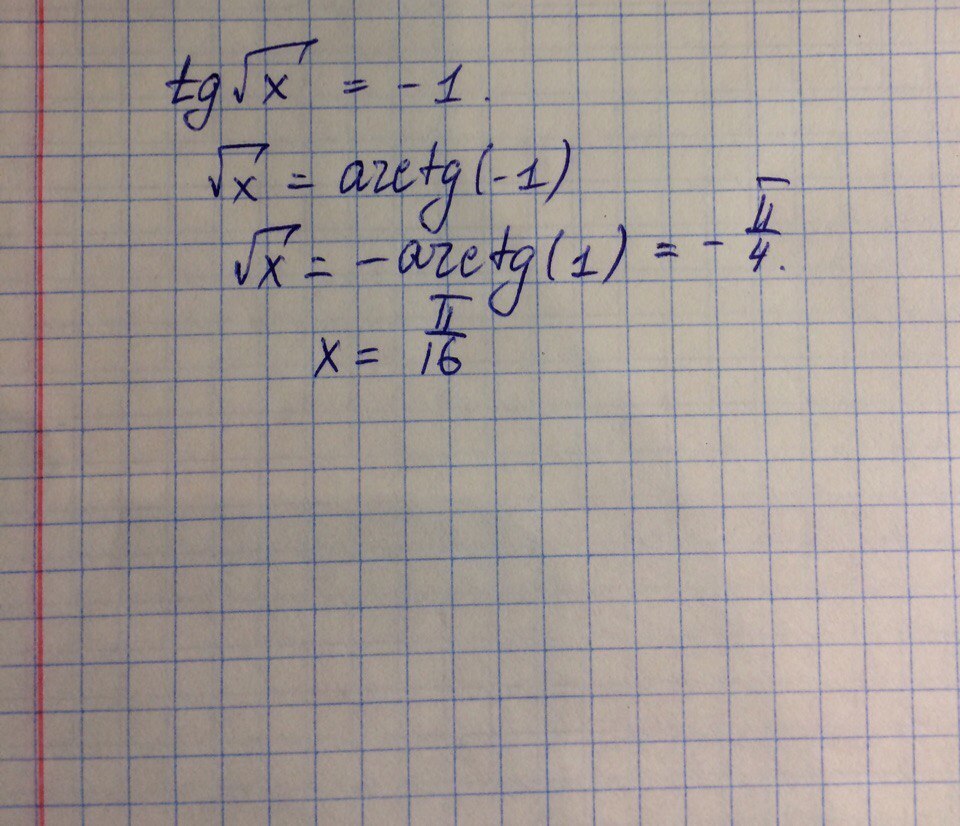 tg√x = -1.
√x = arctg(-1)
√x = -arctg(1) = -π/4.
x = π/16